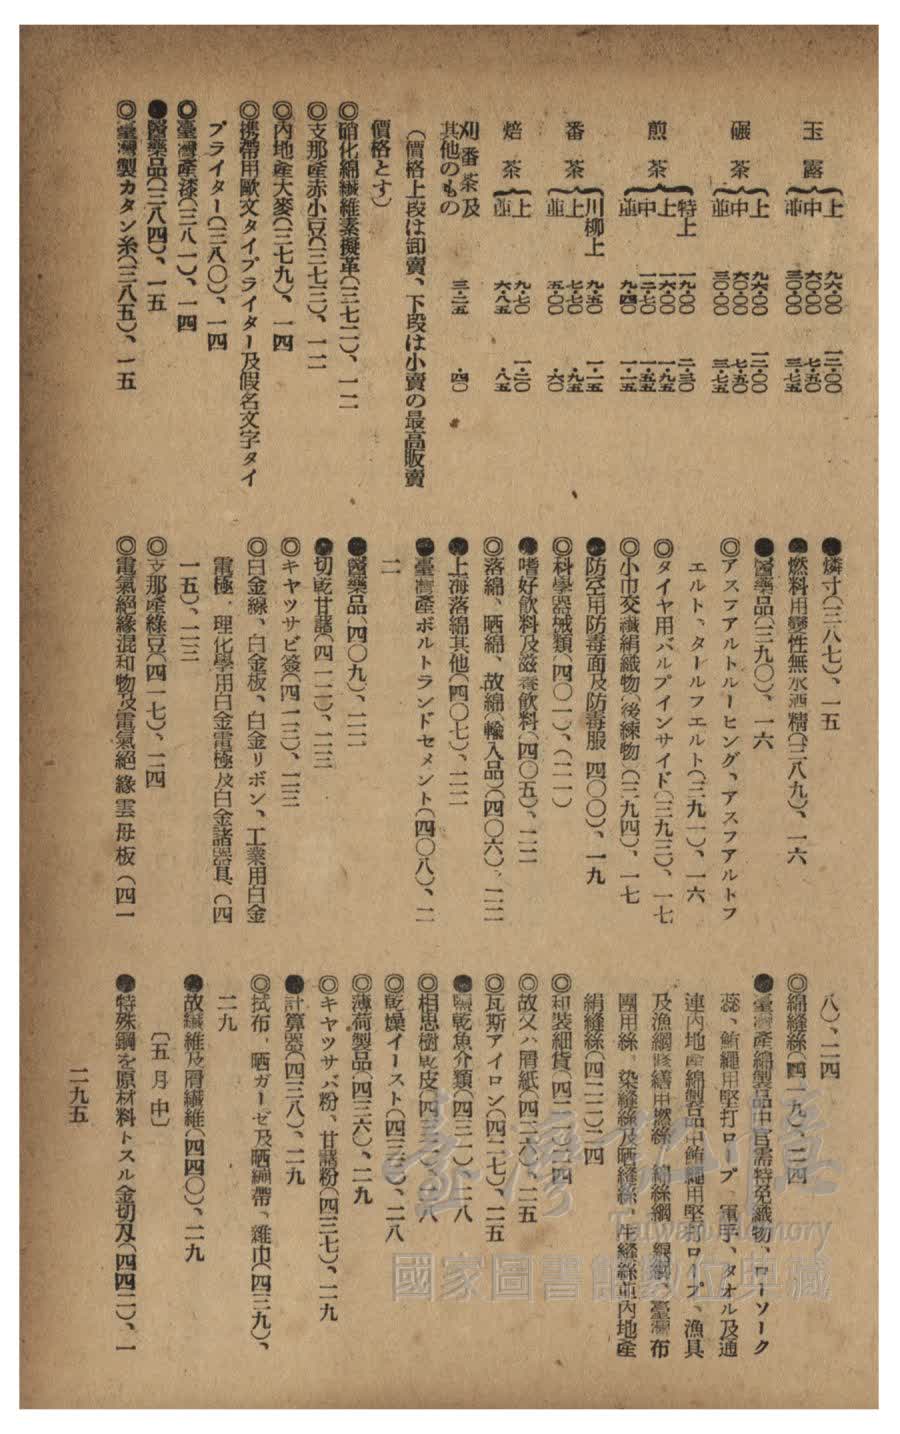 玉露
上 九六・〇〇 一二・〇〇
中 六〇・〇〇 七・五〇
並 三〇・〇〇 三・七五
碾茶
上 九六・〇〇 一二・〇〇
中 六〇・〇〇 七・五〇
並 三〇・〇〇 三・七五
煎茶
特上 一九・〇〇 二・三〇
上 一六・〇〇 一・九五
中 一二・七〇 一・五五
並 九・四〇 一・一五
番茶
川柳上 九・五〇 一・一五
上 七・七〇 ・九五
並 五・〇〇 ・六〇
焙茶
上 九・七〇 一・二〇
並 六・八五 ・八五
刈番茶及
其他のもの 三・二五 ・四〇
(價格上段は卸賣、下段は小賣の最高販賣
價格とす)
◎硝化綿纖維素擬革(三七二)、一二
◎支那產赤小豆(三七三)、一二
◎內地產大麥(三七九)、一四
◎携帶用歐文タイプライター及假名文字タイ
プライター(三八〇)、一四
◎臺灣產漆(三八一)、一四
●醫藥品(三八四)、一五
◎臺灣製カタン糸(三八五)、一五
●燐寸(三八七)、一五
●燃料用變性無水酒精(三八九)、一六
●醫藥品(三九〇)、一六
◎アスフアルトルーヒング、アスフアルトフ
エルト、タールフエルト(三九一)、一六
◎タイヤ用バルブインサイド(三九三)、一七
◎小巾交織絹織物(後練物)(三九四)、一七
●防空用防毒面及防毒服(四〇〇)、一九
◎科學器械類(四〇一)、(二一)
●嗜好飲料及滋養飲料(四〇五)、二二
◎落綿、晒綿、故綿(輸入品)(四〇六)、二二
●上海落綿其他(四〇七)、二二
●臺灣產ポルトランドセメント(四〇八)、二
二
●醫藥品(四〇九)、二二
●切乾甘藷(四一二)、二三
◎キヤツサビ簽(四一三)、二三
◎白金線、白金板、白金リボン、工業用白金
電極、理化學用白金電極及白金諸器具(四
一五)、二三
◎支那產綠豆(四一七)、二四
◎電氣絕緣混和物及電氣絕緣雲母板(四一
八)、二四
◎綿縫絲(四一九)、二四
●臺灣產綿製品中官需特免織物、ローソーク
蕊、鮪繩用堅打ロープ、軍手、タオル及通
連內地產綿製品中鮪繩用堅打ロープ、漁具
及漁網修繕用撚絲、綿絲網、線網、臺灣布
團用絲、染縫絲及晒縫絲、生縫絲並內地產
絹縫絲(四二二)二四
◎和裝細貨(四二一)二四
◎故又ハ屑紙(四二六)、二五
◎瓦斯アイロン(四二七)、二五
●鹽乾魚介類(四三一)、二八
◎相思樹乾皮(四三二)、二八
◎乾燥イースト(四三三)、二八
◎薄荷製品(四三六)、二九
◎キヤツサバ粉、甘藷粉(四三七)、二九
●計算器(四三八)、二九
◎拭布、晒ガーゼ及晒繃帶、雜巾(四三九)、
二九
●故纖維及屑纖維(四四〇)、二九
〔五月中〕
●特殊鋼を原材料トスル金切及(四四二)、一
二九五
臺灣記憶
Taiwan Memory
國家圖書館數位典藏